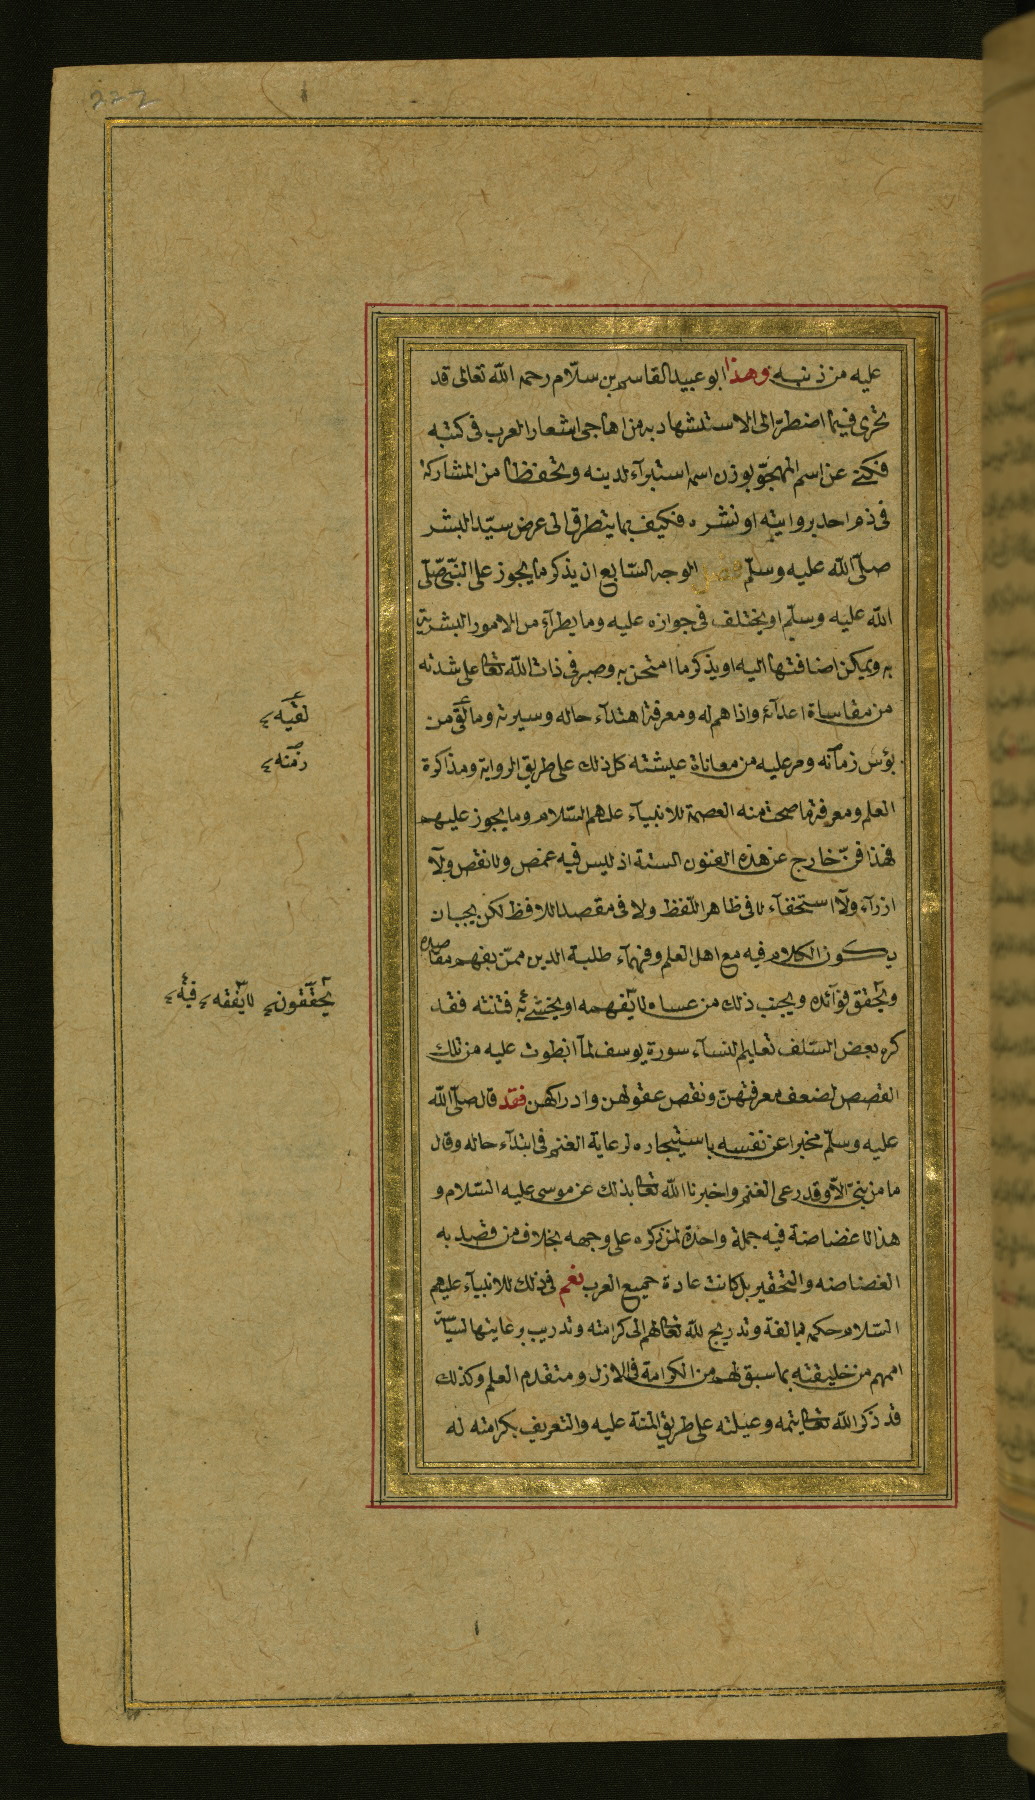 222
عليه من ذنبه وهذا ابو عبيد القاسم بن سلّام رحمه الله تعالى قد
تحرى فيما اضطرّ الى الاستشهاد به من اهاجى اشعار العرب فى كتبه
فكنى عن اسم المهجوّ بوزن اسمه استبرآء لدينه وتحفظا من المشاركة
فى ذم احد بروايته او نشره فكيف بما يتطرق الى عرض سيّد البشر
صلّى الله عليه وسلّم فصل الوجه السّابع ان يذكر ما يجوز على النبّى صّلى
الله عليه وسلّم او يختلف فى جوازه عليه وما يطرأ من الامور البشرية
به ويمكن اضافتها اليه او يذكر ما امتحن به وصبر فى ذات الله تعالى على شدته
من مقاساة اعدآئه واذاهم له ومعرفة ابتدآء حاله وسيرته وما لقى من
بؤس زمانه ومر عليه من معاناة عيشته كل ذلك على طريق الرواية ومذاكرة
العلم ومعرفة ما صحت منه العصمة للانبيآء عليهم السّلام وما يجوز عليهم
فهذا فنّ خارج عن هذه الفنون الستة اذ ليس فيه غمص ولا نقص ولا
ازرآء ولا استخفآء لا فى ظاهر اللّفظ ولا فى مقصد اللافظ لكن يجب ان
يكون الكلام فيه مع اهل العلم وفهمآء طلبة الدين ممّن يفهم مقاصده
ويحقق فوآئده ويجنب ذلك من عساه لا يفهمه او يخشى به فتنته فقد
كره بعض السّلف تعليم النسآء سورة يوسف لمآ انطوت عليه من تلك
القصص لضعف معرفتهنّ ونقص عقولهن وادراكهن فقد قال صلّى الله
عليه وسلّم مخبرا عن نفسه باستيجاره لرعاية الغنم فى ابتدآء حاله وقال
ما من نبىّ الاّ وقد رعى الغنم واخبرنا الله تعالى بذلك عن موسى عليه السّلام و
هذا لا غضاضة فيه جملة واحدة لمن ذكره على وجهه بخلاف من قصد به
الغضاضه والتحقير بل كانت عادة جميع العرب نعم فى ذلك للانبيآء عليهم
السّلام حكمة بالغة وتدريج لله تعالى لهم الى كرامته وتدريب برعايتها لسياسة
اممهم من خليقته بما سبق لهم من الكرامة فى الازل ومتقدم العلم وكذلك
قد ذكر الله تعالى يتمه وعيلته على طريق المنّة عليه والتعريف بكرامته له
لقيه
زمنه
يحققون لا يفقه فيه